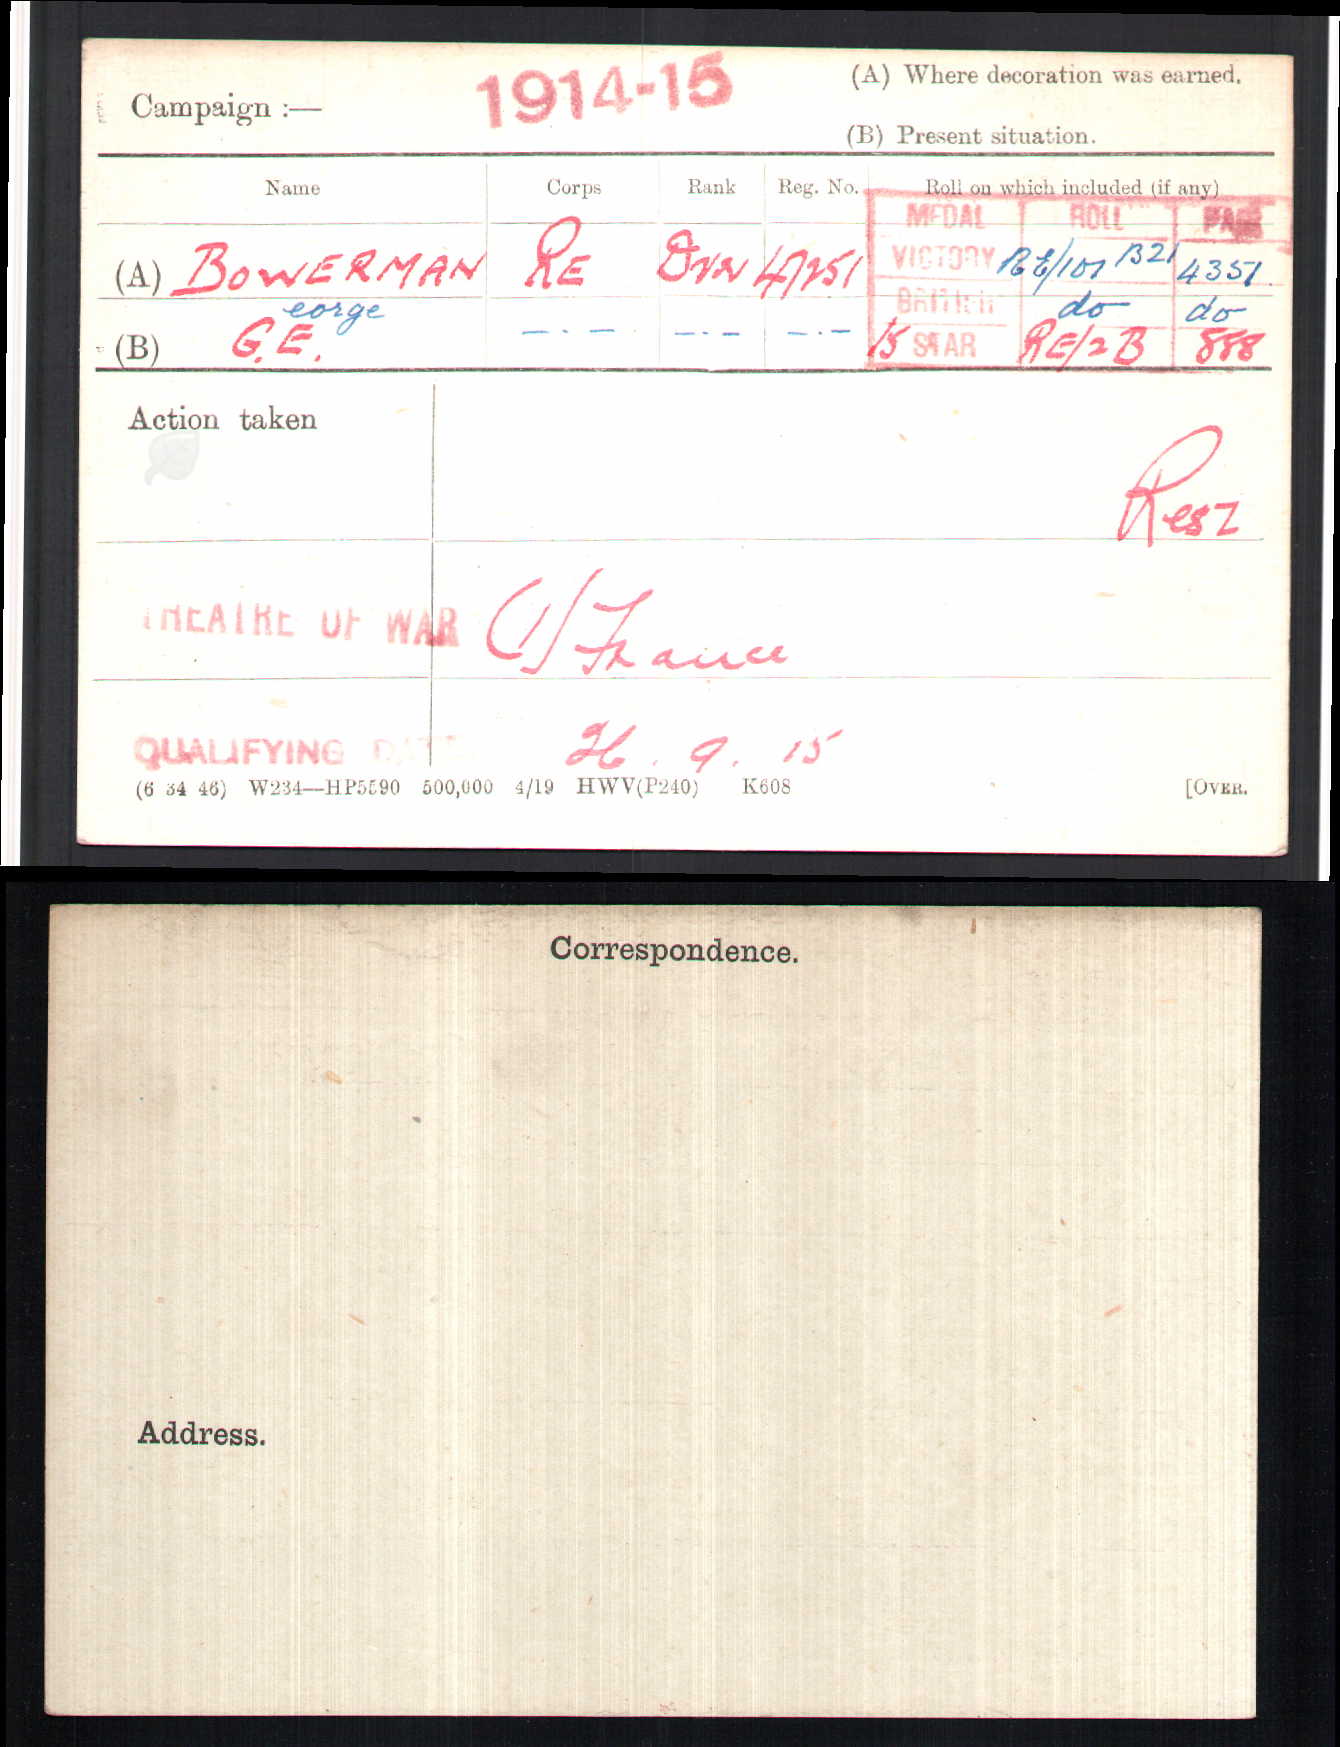 Campaign :— 1914-15 (A) Where decoration was earned.
(B) Present situation.
Name Corps Rank Reg. No. Roll on which included (if any)
MEDAL ROLL PAGE
(A) BOWERMAN RE Dvr VICTORY RE/101 B21 4351.
eorge BRITISH do do
(B) G.E. —.— —.— —.— 15 STAR RE/2B 888
Action taken
Resz
THEATRE OF WAR (1) France
QUALIFYING DATE 26.9.15
(6 34 46) W234—HP5590 500,000 4/19 HWV(P240) K608 [OVER.
Correspondence.
Address.